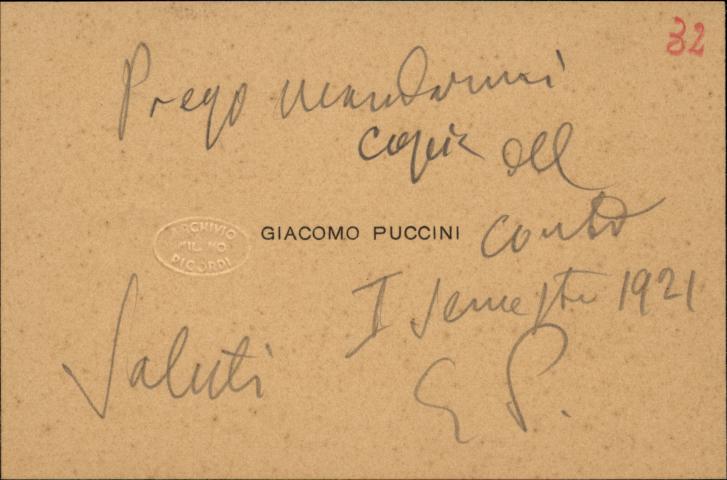 32
Prego mandarmi
copia del
GIACOMO PUCCINI
conto
ARCHIVIO
MILANO
RICORDI
I semestre 1921
Saluti
G P.